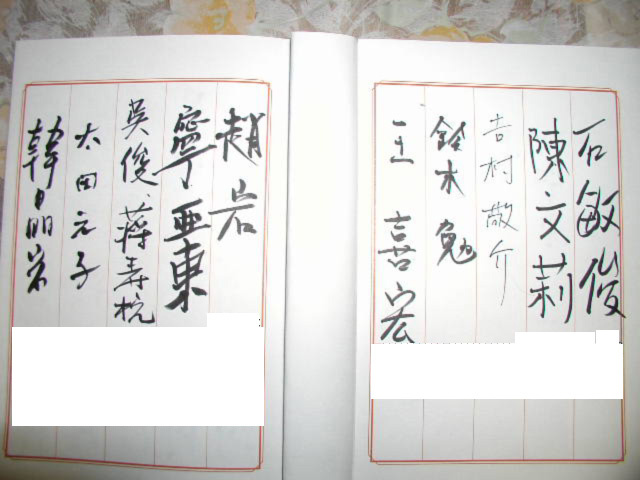 石敏俊
陳文莉
吉村敬介
鈴木勉
王喜宏
趙岩
寧亜東
吳俊 蔣寿杭
太田元子
韓晶岩